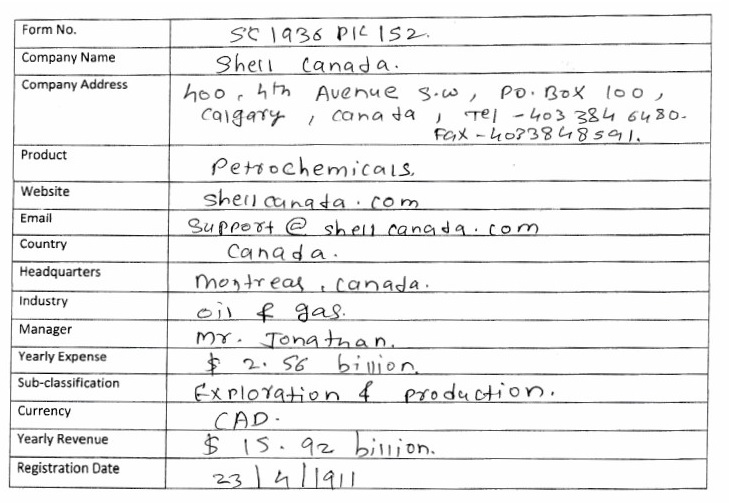 Form No. SC 1936 PIC 152.
Company Name Shell Canada.
Company Address 400, 4th Avenue S.W, PO. BOX 100,
Calgary, Canada, Tel - 403 384 6480.
Fax - 4033848591.
Product Petrochemicals.
Website shellcanada.com
Email Support@shellcanada.com
Country Canada.
Headquarters Montreas, Canada.
Industry Oil & gas.
Manager Mr. Jonathan.
Yearly Expense $ 2.56 billion.
Sub-classification Exploration & production.
Currency CAD.
Yearly Revenue $ 15.92 billion.
Registration Date 23/4/1911